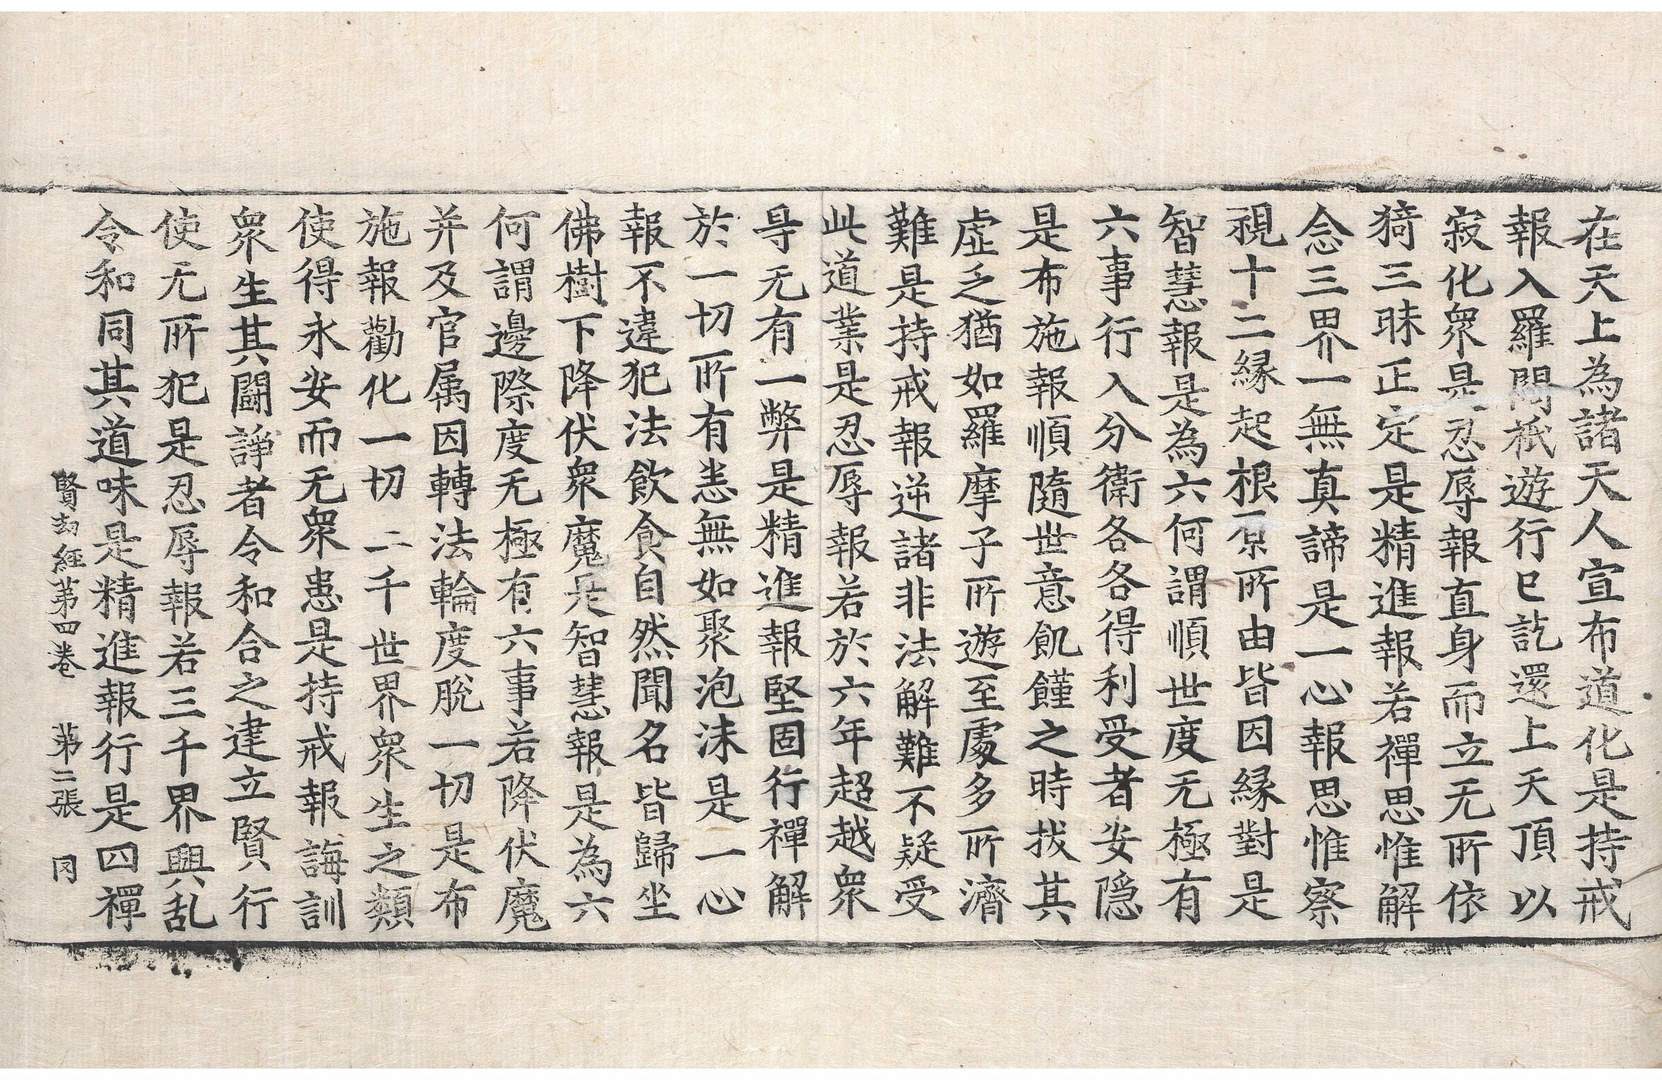 在天上為諸天人宣布道化是持戒
報入羅閱祇遊行已訖還上天頂以
寂化衆是忍辱報直身而立无所依
猗三昧正定是精進報若禪思惟解
念三界一無真諦是一心報思惟察
視十二緣起根原所由皆因緣對是
智慧報是為六何謂順世度无極有
六事行入分衛各各得利受者安隱
是布施報順隨世意飢饉之時拔其
虛乏猶如羅摩子所遊至處多所濟
難是持戒報逆諸非法解難不疑受
此道業是忍辱報若於六年超越衆
㝵无有一弊是精進報堅固行禪解
於一切所有恙無如聚泡沫是一心
報不違犯法飲食自然聞名皆歸坐
佛樹下降伏衆魔是智慧報是為六
何謂邊際度无極有六事若降伏魔
并及官属因轉法輪度脫一切是布
施報勸化一切二千世界衆生之類
使得永安而无衆患是持戒報誨訓
衆生其闘諍者令和合之建立賢行
使无所犯是忍辱報若三千界興乱
令和同其道味是精進報行是四禪
賢劫經第四卷 第二張 冈